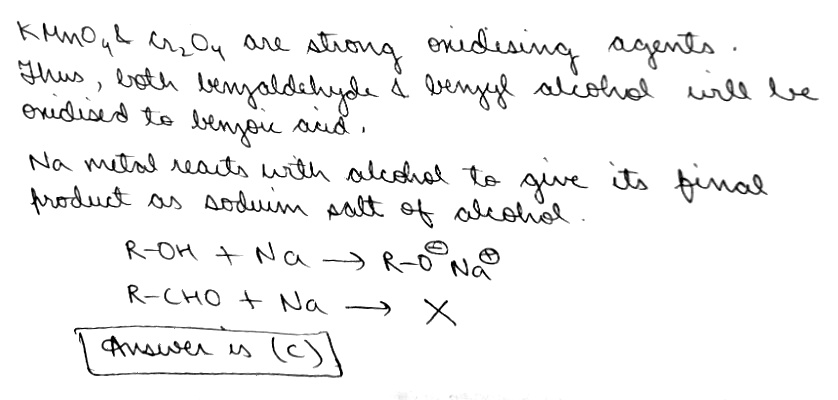 KMnO₄ & Cr₂O₄ are strong oxidising agents.
Thus, both benzaldehyde & benzyl alcohol will be
oxidised to benzoic acid.
Na metal reacts with alcohol to give its final
product as sodium salt of alcohol.
R-OH + Na → R-O⊖ Na⊕
R-CHO + Na → X
Answer is (c)